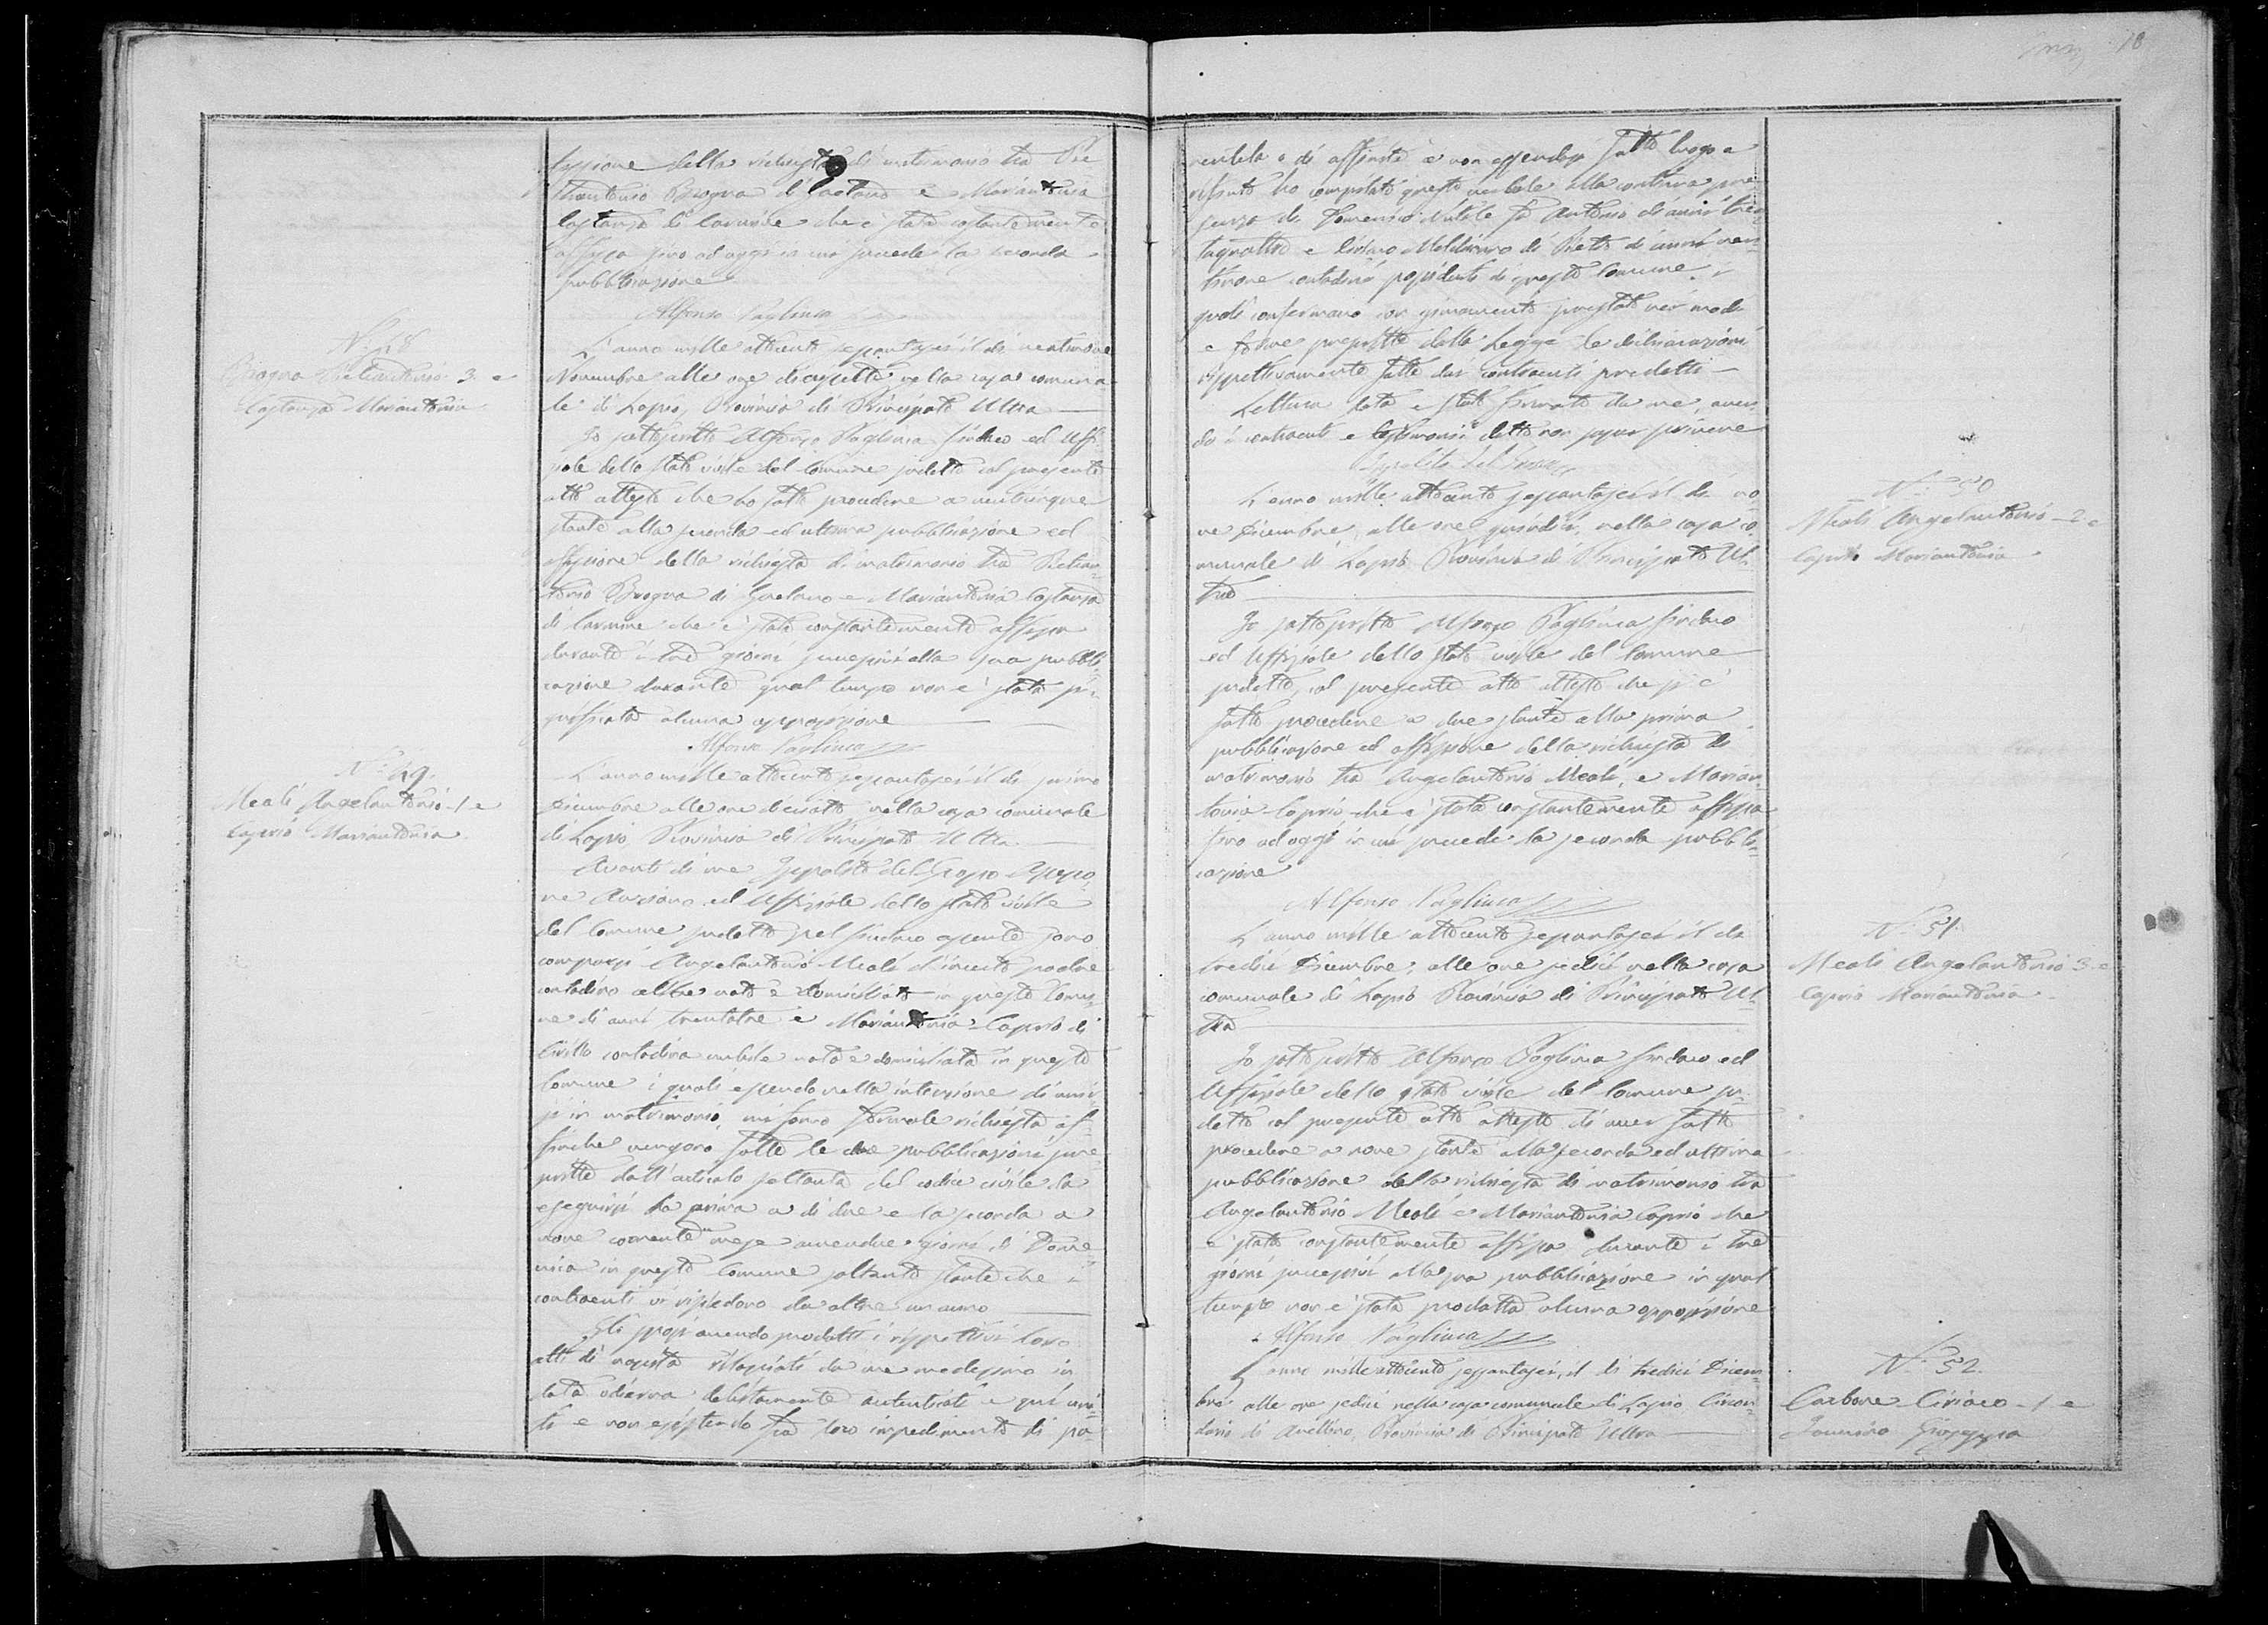 fissione della richiesta di matrimonio tra Pie
trantonio Brogna di Gaetano e Mariantonia
Castanza di Carmine che è stata costantemente
affissa sino ad oggi in cui precede la seconda
pubblicazione
Alfonso Pagliuca
N. 48
Brogna Pietrantonio 3. e
Castanza Mariantonia
L'anno mille ottocento settantasei il dì ventinove
Novembre alle ore diciassette nella casa comuna
le di Lapio, Provincia di Principato Ultra
Io sottoscritto Alfonso Pagliuca Sindaco ed Uffi
ziale dello stato civile del Comune sudetto col presente
atto attesto che ho fatto procedere a venticinque
stante alla seconda ed ultima pubblicazione ed
affissione della richiesta di matrimonio tra Pietran
tonio Brogna di Gaetano e Mariantonia Castanza
di Carmine che è stata constantemente affissa
durante i tre giorni successivi alla sua pubbli
cazione durante qual tempo non è stata
alcuna opposizione
Alfonso Pagliuca
N. 49.
Meoli Angelantonio 1 e
Caprio Mariantonia
L'anno mille ottocento settantasei il dì primo
Dicembre alle ore diciotto nella casa comunale
di Lapio Provincia di Principato Ultra
Avanti di me Ippolito del Grosso Assesso
re Anziano ed Uffiziale dello stato civile
del Comune sudetto pel Sindaco assente sono
comparsi Angelantonio Meoli d'incerto padre
contadino celibe nato e domiciliato in questo Comu
ne di anni trentatre e Mariantonia Caprio di
Cirillo contadina nubile nata e domiciliata in questo
Comune i quali essendo nella intenzione di unir
si in matrimonio, mi fanno formale richiesta af
finche vengano fatte le due pubblicazioni pre
scritte dall'articolo settanta del codice civile da
eseguirsi la prima a dì due e la seconda a
nove corrente mese amendue giorni di Dome
nica in questo Comune soltanto stante che i
contraenti vi risiedono da oltre un anno
Gli sposi avendo prodotti i rispettivi loro
atti di nascita rilasciati da me medesimo in
data odierna debitamente autenticati e qui uni
ti e non esistendo fra loro impedimento di pa
18
rentela o di affinità e non essendosi fatto luogo a
rifiuto ho compilato questo verbale alla continua pre
senza di Domenico Natale fu Antonio di anni tren
taquattro e Ciriaco di Pietro di anni ven
tinove contadini possidenti di questo Comune i
quali confermano con giuramento prestato nei modi
e forme prescritte dalla Legge le dichiarazioni
rispettivamente fatte dai contraenti predetti
Lettura data è stato firmato da me, aven
do i contraenti e testimonii detto non saper scrivere
Ippolito del Grosso
N. 50
Meoli Angelantonio 2 e
Caprio Mariantonia
L'anno mille ottocento settantasei il dì no
ve Dicembre, alle ore quindici, nella casa co
munale di Lapio Provincia di Principato Ul
tra
Io sottoscritto Alfonso Pagliuca Sindaco
ed Uffiziale dello stato civile del Comune
sudetto, col presente atto attesto che si è
fatto procedere a due stante alla prima
pubblicazione ed affissione della richiesta di
matrimonio tra Angelantonio Meoli, e Marian
tonia Caprio, che è stata constantemente affissa
fino ad oggi in cui precede la seconda pubbli
cazione
Alfonso Pagliuca
N. 51.
Meoli Angelantonio 3 e
Caprio Mariantonia
L'anno mille ottocento settantasei il dì
tredici Dicembre, alle ore sedici nella casa
comunale di Lapio Provincia di Principato Ul
tra
Io sottoscritto Alfonso Pagliuca Sindaco ed
Uffiziale dello stato civile del Comune su
detto col presente atto attesto di aver fatto
procedere a nove stante alla seconda ed ultima
pubblicazione della richiesta di matrimonio tra
Angelantonio Meoli e Mariantonia Caprio che
è stata constantemente affissa durante i tre
giorni successivi alla sua pubblicazione in qual
tempo non è stata prodotta alcuna opposizione
Alfonso Pagliuca
N. 52.
Carbone Ciriaco 1 e
Giuseppa
L'anno mille ottocento settantasei, il dì tredici Dicem
bre alle ore sedici nella casa comunale di Lapio Circon
dario di Avellino, Provincia di Principato Ultra